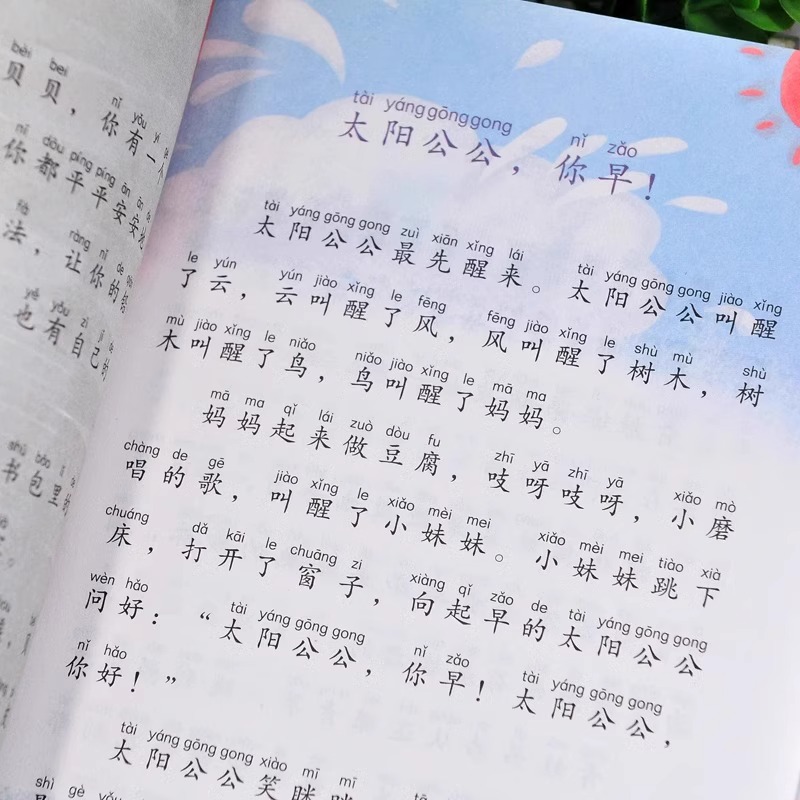 bèi bei nǐ yǒu yí
贝贝，你有一个
nǐ dōu píng píng ān ān
你都平平安安
fǎ ràng nǐ de
法，让你的
yě yǒu zì jǐ
也有自己的
shū bāo lǐ
书包里
tài yáng gōng gong nǐ zǎo
太阳公公，你早！
tài yáng gōng gong zuì xiān xǐng lái tài yáng gōng gong jiào xǐng
太阳公公最先醒来。太阳公公叫醒
le yún yún jiào xǐng le fēng fēng jiào xǐng le shù mù shù
了云，云叫醒了风，风叫醒了树木，树
mù jiào xǐng le niǎo niǎo jiào xǐng le mā ma
木叫醒了鸟，鸟叫醒了妈妈。
mā ma qǐ lái zuò dòu fu zhī yā zhī yā xiǎo mò
妈妈起来做豆腐，吱呀吱呀，小磨
chàng de gē jiào xǐng le xiǎo mèi mei xiǎo mèi mei tiào xià
唱的歌，叫醒了小妹妹。小妹妹跳下
chuáng dǎ kāi le chuāng zi xiàng qǐ zǎo de tài yáng gōng gong
床，打开了窗子，向起早的太阳公公
wèn hǎo tài yáng gōng gong nǐ zǎo tài yáng gōng gong
问好：“太阳公公，你早！太阳公公，
nǐ hǎo
你好！”
tài yáng gōng gong xiào mī mī
太阳公公笑眯眯
shì gè